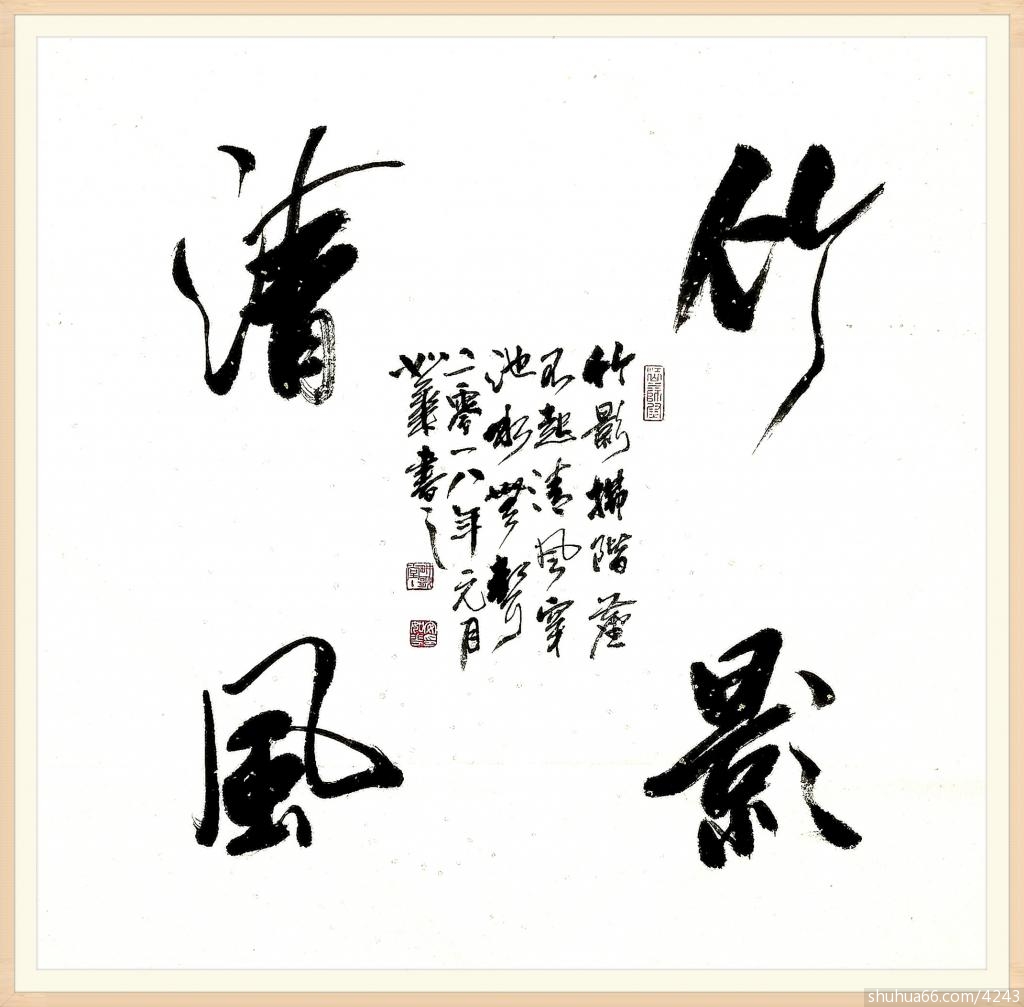 竹影
清風
竹影掃階塵
不起清風穿
池水無聲
二零一八年元月
書之
shuhua66.com/4243